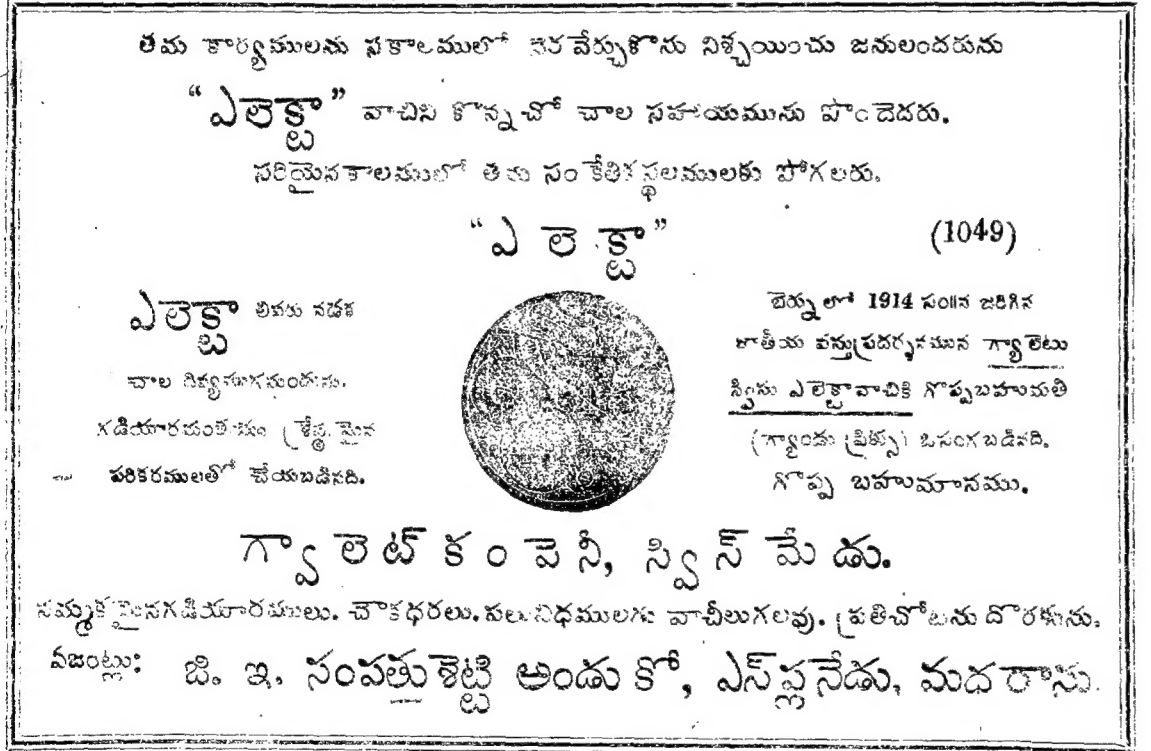 తమ కార్యములను సకాలములో నెరవేర్చుకొను నిశ్చయించు జనులందరును
“ఎలెక్టా” వాచిని కొన్నచో చాల సహాయమును పొందెదరు.
సరియైనకాలములో తమ సంకేతికస్థలములకు పోగలరు.
“ఎ లె క్టా”
(1049)
ఎలెక్టా లివరు నడక
చాల దివ్యముగనుండును.
గడియారయంత్రము శ్రేష్ఠమైన
పరికరములతో చేయబడినది.
బెర్ను లో 1914 సం॥న జరిగిన
జాతీయ వస్తుప్రదర్శనమున గ్యాలెటు
స్విసు ఎలెక్టావాచికి గొప్పబహుమతి
(గ్యాండు ప్రిక్సు) ఒసంగబడినది.
గొప్ప బహుమానము.
గ్వా లెట్ కం పె నీ, స్విస్ మేడు.
నమ్మకమైనగడియారములు. చౌకధరలు. పలువిధములగు వాచీలుగలవు. ప్రతిచోటను దొరకును.
ఏజంట్లు: జి. ఇ. సంపత్తుశెట్టి అండు కో, ఎస్‌ప్లనేడు, మదరాసు.